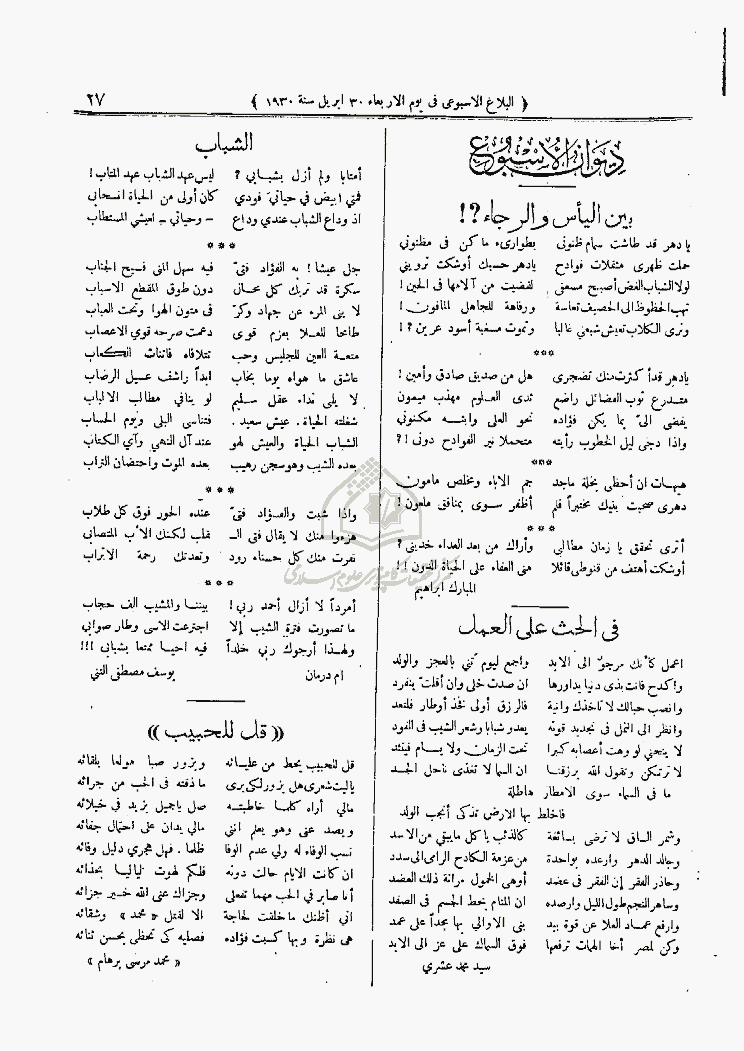 ﴿ البلاغ الاسبوعى فى يوم الاربعاء ٣٠ ابريل سنة ١٩٣٠ ﴾
٢٧
ديوان الاسبوع
بين اليأس والرجاء ؟!
يا دهر قد طاشت سهام ظنونى بطوارىء ما كن فى مظنونى
حملت ظهرى مثقلات فوادح يادهر حسبك أوشكت تروينى
لولا الشباب الغض أصبح مسعفى لقضيت من آلامها فى الحين !
تهب الحظوظ الى الحصيف تعاسة ورفاهة للجاهل المأفون !
وترى الكلاب تعيش شبعى غالبا وتموت مسغبة أسود عرين ؟ !
***
يادهر قدأ كثرت منك تضجرى هل من صديق صادق وأمين !
متدرع ثوب الفضائل راضع ثدى العلوم مهذب ميمون
يفضى الىّ بما يكن فؤاده نحو العلى وابثه مكنونى
واذا دجى ليل الخطوب رأيته متحملا نير الفوادح دونى !؟
***
هيهات ان أحظى بخلة ماجد جم الاباء ومخلص مامون
دهرى صحبت بنيك مختبراً فلم أظفر سوى بمنافق ملعون !
***
أترى تحقق يا زمان مطالبى وأراك من بعد العداء خدينى ؟
أوشكت أهتف من قنوطى قائلا هى العفاء على الحياة الدون !!
المبارك ابراهيم
فى الحث على العمل
اعمل كأنك مرجوّ الى الابد واجمع ليوم تنى بالعجز والولد
واكدح فانت بذى دنيا يداورها ان صدت خلى وان أفلت ينفرد
وانصب حبالك لا تاخذك وانية فالرزق أولى فخذ أوطار فلتعد
وانظر الى النمل فى تجديد قوته يعدو شبابا وشعر الشيب فى الفود
لا ينحنى لو وهت أعصابه كبرا تحت الزمان ولا يسام فيتئد
لا ترتكن وتقول الله يرزقنا ان السما لا تغذى ناحل الجسد
ما فى السماء سوى الامطار هاطلة
فاخلط بها الارض تذكى أنجب الولد
وشمر الساق لا ترضى بسائغة كالذئب ياكل مايبقى من الاسد
وجالد الدهر وارعده بواحدة من عزمة الكادح الرامى الى سدد
وحاذر الفقر إن الفقر فى عضد أوهى الخمول مرانة ذلك العضد
وساهر النجم طول الليل وارصده ان المنام يحط الجسم فى الصفد
وارفع عماد العلا عن قوة بيد بنى الاوالى بها مجداً على عمد
وكن لمصر أخا الهمات ترفعها فوق السماك على عز الى الابد
سيد محمد عشرى
الشباب
أمتابا ولم أزل بشبابى ؟ ليس عهد الشباب عهد المتاب !
فمتى ابيض فى حياتى فودى كان أولى من الحياة انسحابى
اذ وداع الشباب عندى وداع – وحياتى – لعيشى المستطاب
***
جل عيشا ! به الفؤاد فتىّ فيه سهل المنى فسيح الجناب
سكرة قد تريك كل محال دون طوق المقطع الاسباب
لا ينى المرء عن جهاد وكرّ فى متون الهوا وتحت العباب
طامحا للعلا بعزم قوى دعمت صرحه قوي الاعصاب
متعة العين للجليس وحب تتلاقاه فاتنات الكعاب
عاشق ما هواه يوما بخاب ابداً راشف عسيل الرضاب
لا يلى نداء عقل سليم لو ينافي مطالب الالباب
شغلته الحياة . عيش سعيد . فتناسى البلى ويوم الحساب
الشباب الحياة والعيش لهو عند آل النهى وآي الكتاب
بعده الشيب وهو سجن رهيب بعده الموت واحتضان التراب
***
واذا شبت والفؤاد فتىّ عنده الحور فوق كل طلاب
هزءوا منك لا يقال فتى الـ قلب لكنك الأب المتصابى
نفرت منك كل حسناء رود وتعدتك رحمة الاتراب
***
أمرداً لا أزال أحمد ربي ! بيننا والمشيب الف حجاب
ما تصورت فترة الشيب إلا اجترعت الاسى وطار صوابى
ولهذا أرجوك ربى خلداً فيه احيا ممتعا بشبابى !!!
ام درمان يوسف مصطفى التنى
« قل للحبيب »
قل للحبيب يحط من عليائه ويزور صبا مولعا بلقائه
ياليت شعرى هل يزور لكى يرى ماذقته فى الحب من جرائه
مالى أراه كلما خاطبته صل ياجميل يزيد فى خيلائه
ويصد عنى وهو يعلم اننى مالى يدان على احتمال جفائه
نسب الوفاء له ولى عدم الوفا ظلما . فهل هجرى دليل وفائه
ان كانت الايام حالت دونه فلكم لهوت لياليا بحذائه
أنا صابر فى الحب مهما تفعلى وجزاك عنى الله خير جزائه
انى أظنك ماخلقت لحاجة الا لقتل « محمد » وشقائه
هى نظرة وبها كسبت فؤاده فصليه كى تحظى بحسن ثنائه
« محمد مرسى برهام »